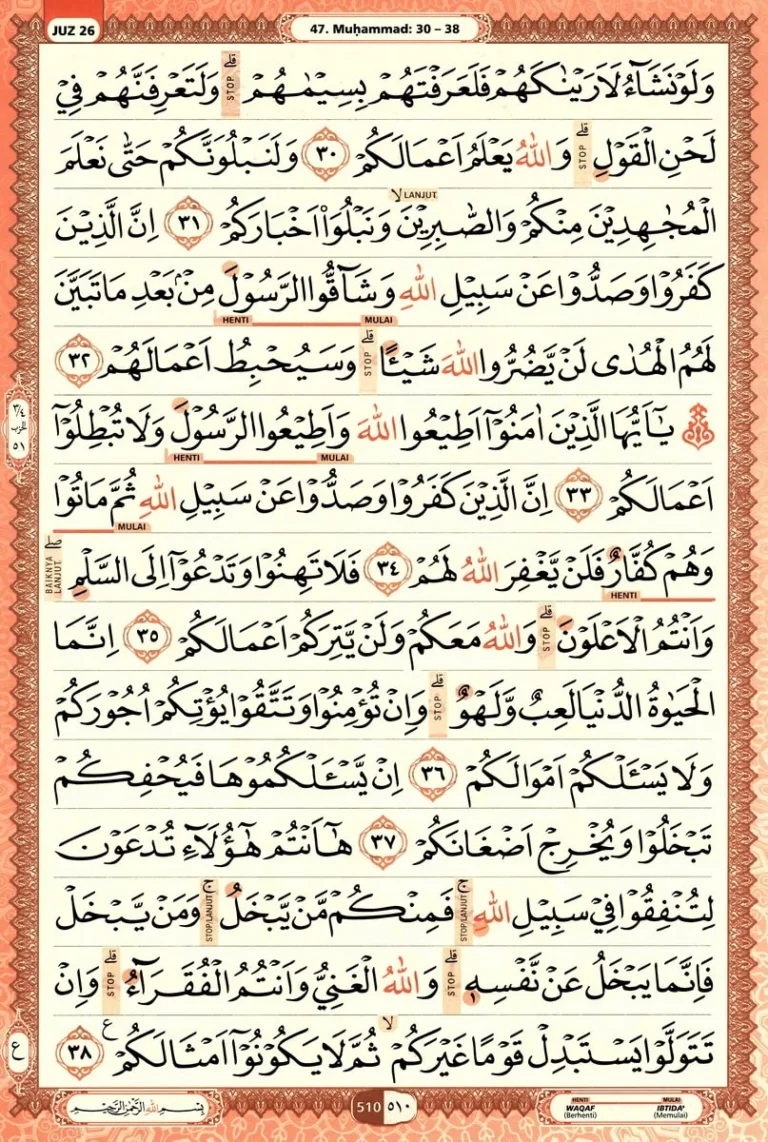 JUZ 26
47. Muḥammad: 30 – 38
وَلَوْ نَشَاۤءُ لَاَرَيْنٰكَهُمْ فَلَعَرَفْتَهُمْ بِسِيْمٰهُمْ ۗ STOP وَلَتَعْرِفَنَّهُمْ فِيْ
لَحْنِ الْقَوْلِ ۗ STOP وَاللّٰهُ يَعْلَمُ اَعْمَالَكُمْ ٣٠ وَلَنَبْلُوَنَّكُمْ حَتّٰى نَعْلَمَ
الْمُجٰهِدِيْنَ مِنْكُمْ وَالصّٰبِرِيْنَ ۙ LANJUT وَنَبْلُوَا۟ اَخْبَارَكُمْ ٣١ اِنَّ الَّذِيْنَ
كَفَرُوْا وَصَدُّوْا عَنْ سَبِيْلِ اللّٰهِ وَشَاۤقُّوا الرَّسُوْلَ مِنْۢ بَعْدِ مَا تَبَيَّنَ
HENTI MULAI
لَهُمُ الْهُدٰى لَنْ يَّضُرُّوا اللّٰهَ شَيْـًٔا ۗ STOP وَسَيُحْبِطُ اَعْمَالَهُمْ ٣٢
يٰٓاَيُّهَا الَّذِيْنَ اٰمَنُوْٓا اَطِيْعُوا اللّٰهَ وَاَطِيْعُوا الرَّسُوْلَ وَلَا تُبْطِلُوْٓا
HENTI MULAI
اَعْمَالَكُمْ ٣٣ اِنَّ الَّذِيْنَ كَفَرُوْا وَصَدُّوْا عَنْ سَبِيْلِ اللّٰهِ ثُمَّ مَاتُوْا
MULAI
وَهُمْ كُفَّارٌ فَلَنْ يَّغْفِرَ اللّٰهُ لَهُمْ ٣٤ فَلَا تَهِنُوْا وَتَدْعُوْٓا اِلَى السَّلْمِ ۖ BAIKNYA LANJUT
HENTI
وَاَنْتُمُ الْاَعْلَوْنَ ۗ STOP وَاللّٰهُ مَعَكُمْ وَلَنْ يَّتِرَكُمْ اَعْمَالَكُمْ ٣٥ اِنَّمَا
الْحَيٰوةُ الدُّنْيَا لَعِبٌ وَّلَهْوٌ ۗ STOP وَاِنْ تُؤْمِنُوْا وَتَتَّقُوْا يُؤْتِكُمْ اُجُوْرَكُمْ
وَلَا يَسْـَٔلْكُمْ اَمْوَالَكُمْ ٣٦ اِنْ يَّسْـَٔلْكُمُوْهَا فَيُحْفِكُمْ
تَبْخَلُوْا وَيُخْرِجْ اَضْغَانَكُمْ ٣٧ هٰٓاَنْتُمْ هٰٓؤُلَاۤءِ تُدْعَوْنَ
لِتُنْفِقُوْا فِيْ سَبِيْلِ اللّٰهِ ۚ STOP/LANJUT فَمِنْكُمْ مَّنْ يَّبْخَلُ ۚ STOP/LANJUT وَمَنْ يَّبْخَلْ
فَاِنَّمَا يَبْخَلُ عَنْ نَّفْسِهٖ ۗ STOP وَاللّٰهُ الْغَنِيُّ وَاَنْتُمُ الْفُقَرَاۤءُ ۗ STOP وَاِنْ
تَتَوَلَّوْا يَسْتَبْدِلْ قَوْمًا غَيْرَكُمْ ۙ ثُمَّ لَا يَكُوْنُوْٓا اَمْثَالَكُمْ ࣖ ٣٨
٣/٤
الحزب
٥١
ع
بِسْمِ اللّٰهِ الرَّحْمٰنِ الرَّحِيْمِ
510 ٥١٠
HENTI MULAI
WAQAF IBTIDA'
(Berhenti) (Memulai)